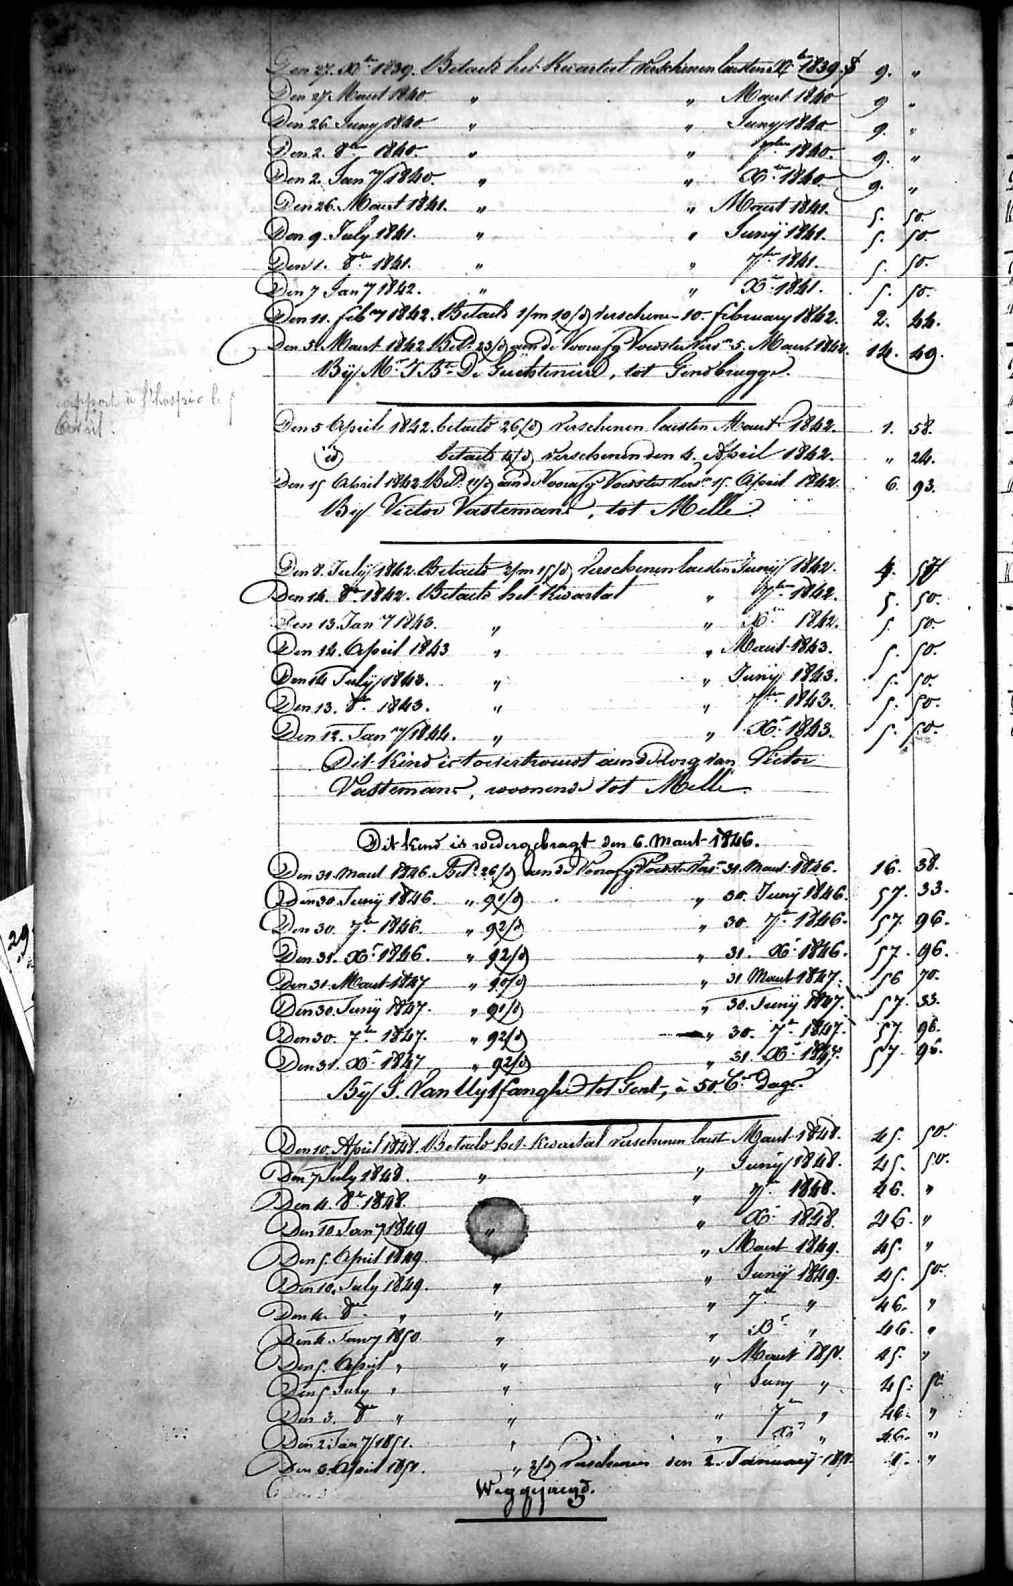 Den 27. Xbr 1839. Betaelt het Kwartael verschenen laesten Xbr 1839. f 9. "
Den 27 Maert 1840 " " Maert 1840 9 "
Den 26 Juny 1840. " " Juny 1840 9. "
Den 2. 8br 1840. " " 7ber 1840. 9. "
Den 2. Jany 1840. " " Xbr 1840 9. "
Den 26. Maert 1841. " " Maert 1841. 5. 50.
Den 9. July 1841. " " Junij 1841. 5. 50
Den 1. 8br 1841. " " 7br 1841. 5. 50.
Den 7 Jany 1842. " " Xbr 1841. 5. 50.
Den 11. feby 1842. Betaelt 1/m 10/d verschenen 10. february 1842. 2. 44.
Den 5. Maert 1842 Betd 23/d aen de Voorafg Voedster vers. 5. Maert 1842. 14. 49.
Bij Mr J. Bte De , tot Gendbrugge.
rapport à l'hospice le
Avril.
Den 5 April 1842. betaelt 26/d verschenen laesten Maert 1842. 1. 58.
id betaelt 4/d verschenen den 4. April 1842. " 24.
Den 15 April 1842. Betd 11/d aen de Voorafg Voedster vers. 15. April 1842. 6. 93.
Bij Victor Vastemans, tot Melle.
Den 8. Julij 1842. Betaelt 2/m 15/d verschenen laesten Junij 1842. 4. 57
Den 14. 8br 1842. Betaelt het Kwartael " 7ber 1842. 5. 50.
Den 13. Jany 1843. " " Xbr 1842. 5. 50
Den 14. April 1843 " " Maert 1843. 5. 50.
Den 14 Julij 1843. " " Junij 1843. 5. 50.
Den 13. 8br 1843. " " 7ber 1843. 5. 50.
Den 12. Jany 1844. " " Xbr 1843. 5. 50.
Dit Kind is toevertrouwt aen de Zorg van Victor
Vastemans, woonende tot Melle.
Dit kind is wedergebragt den 6. Maert 1846.
Den 31 Maert 1846. Betd 26/d aen de Voorafg Voedster vers. 31 Maert 1846. 16. 38.
Den 30. Junij 1846. " 91/d " 30. Junij 1846. 57. 33.
Den 30. 7br 1846. " 92/d " 30. 7br 1846. 57. 96.
Den 31. Xbr 1846. " 92/d " 31. Xbr 1846. 57. 96.
Den 31. Maert 1847 " 90/d " 31 Maert 1847. 56 70.
Den 30. Junij 1847. " 91/d " 30. Junij 1847. 57. 33.
Den 30. 7br 1847. " 92/d " 30. 7br 1847. 57. 96.
Den 31. Xbr 1847 " 92/d " 31. Xbr 1847. 57. 96.
Bij J. Van Uytfanghe tot Gent, à 50. Cs daegs.
Den 10. April 1848. Betaelt het Kwartael verschenen laest Maert 1848. 45. 50.
Den 7 July 1848. " " Junij 1848. 45. 50.
Den 4. 8br 1848. " 7br 1848. 46. "
Den 10 Jany 1849 " " Xbr 1848. 46. "
Den 5. April 1849. " " Maert 1849. 45. "
Den 10. July 1849. " " Junij 1849. 45. 50.
Den 4. 8br " " " 7br " 46. "
Den 4. Jany 1850. " " Xbr " 46. "
Den 5. April " " " Maert 1850. 45. "
Den 5 July " " " Juny " 45. 50
Den 3. 8br " " " 7br " 46. "
Den 2 Jany 1851. " " Xbr " 46. "
Den 6. April 1851. " 2/d verschenen den 2. January 1851. "
Weggejaegd.
29